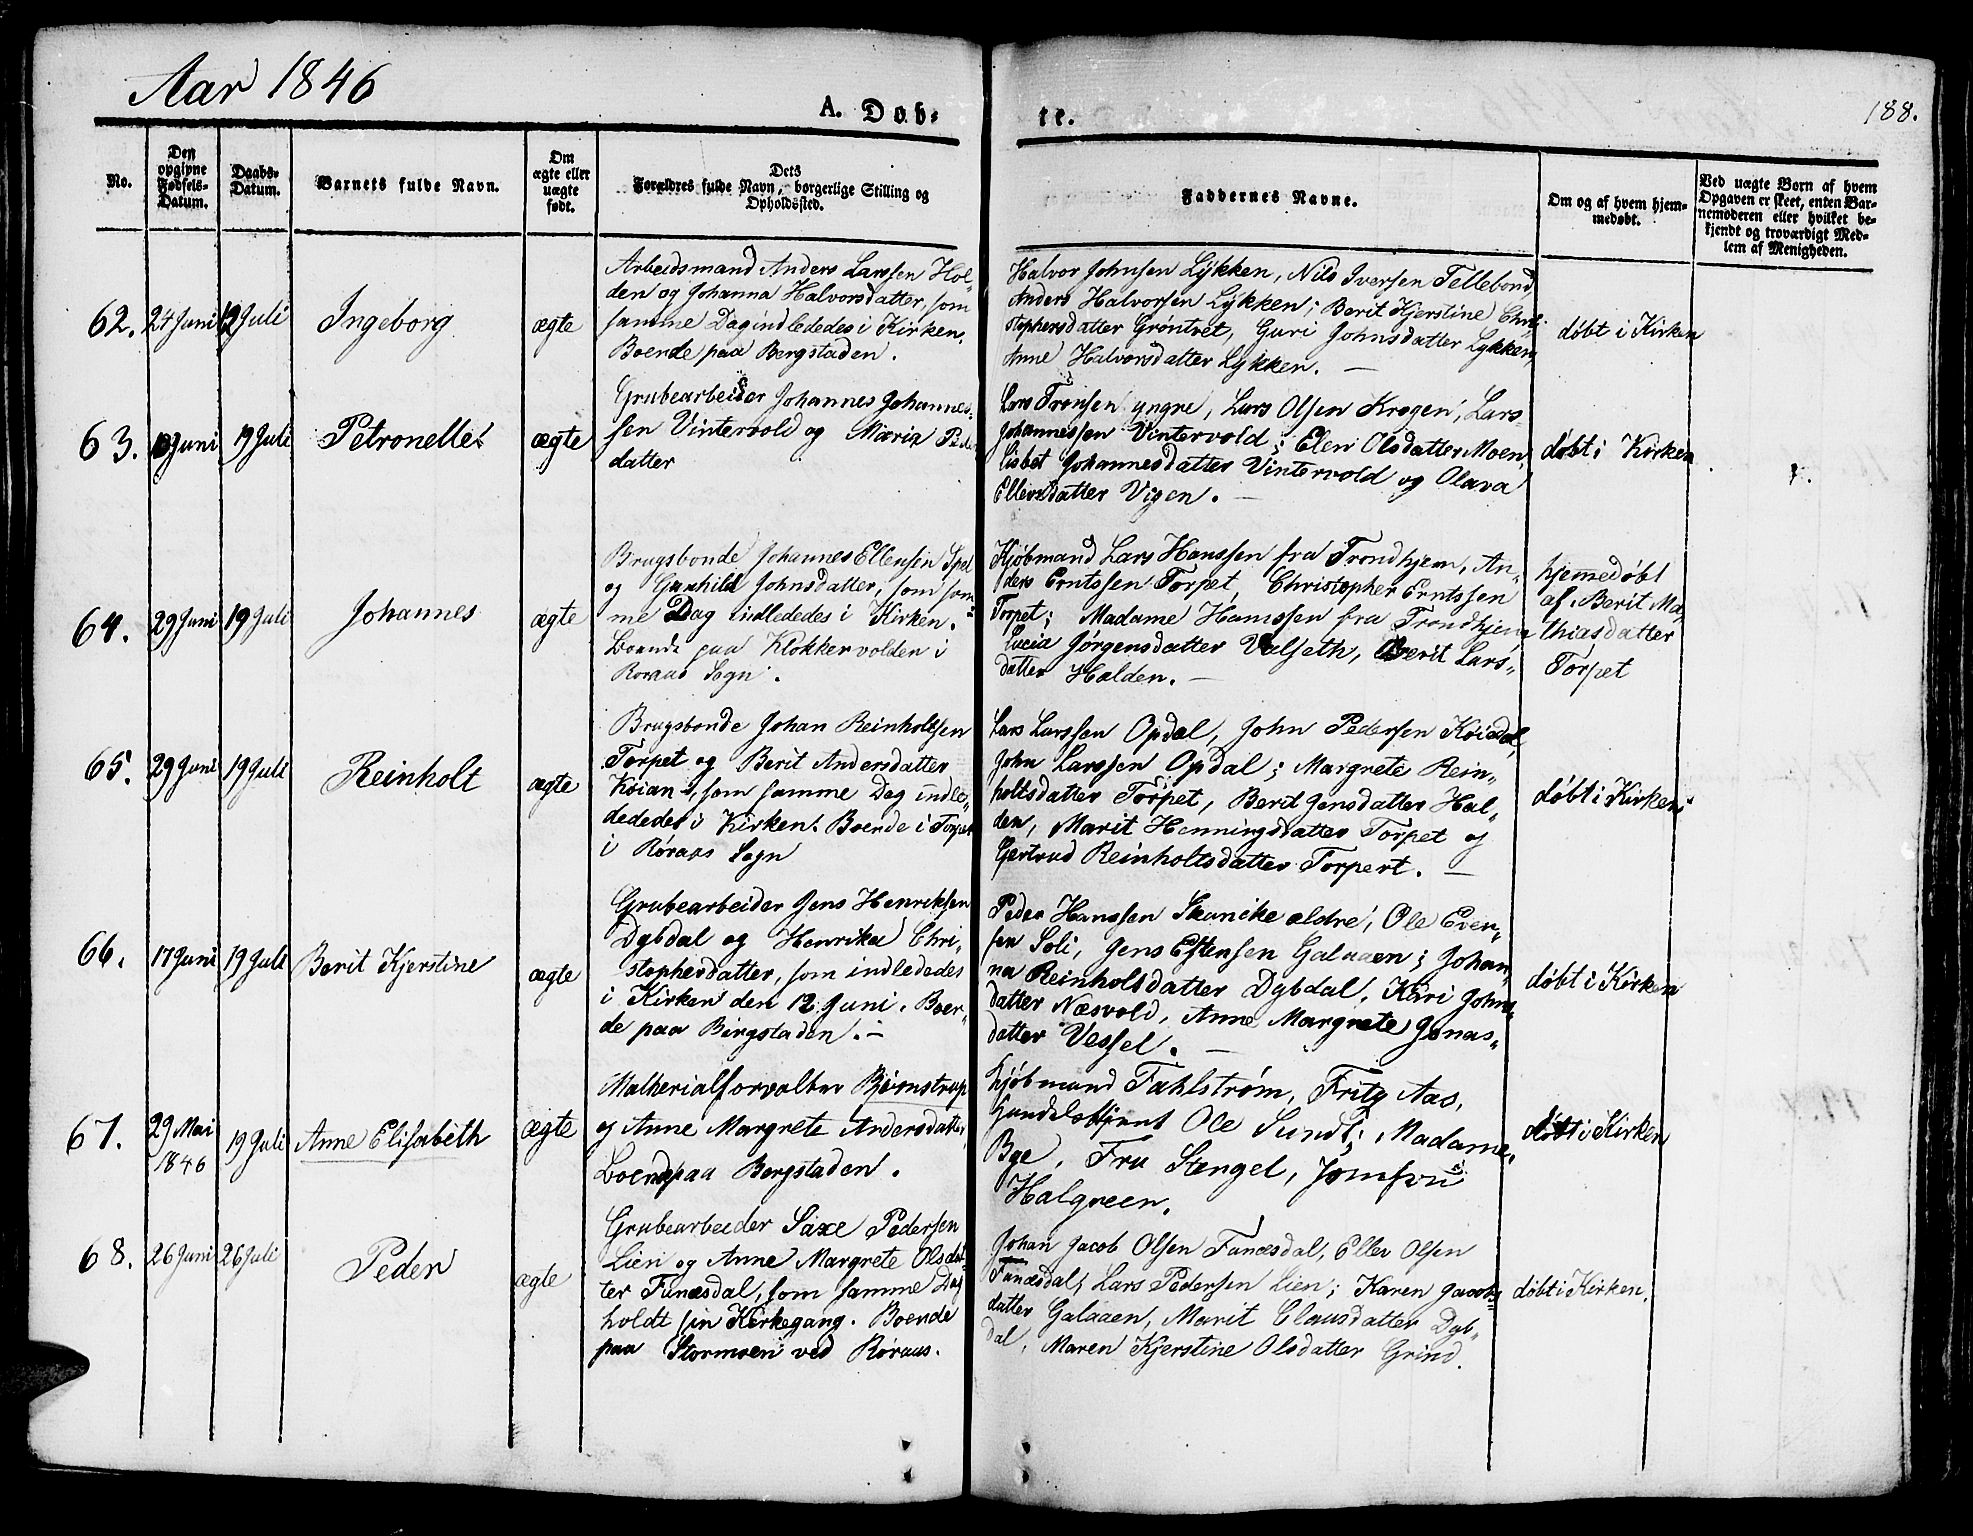 Aar 1846
A. Døb-
te.
188.
No.
Den opgivne Fødsels-Datum.
Daabs-Datum.
Barnets fulde Navn.
Om ægte eller uægte født.
Dets Forældres fulde Navn, borgerlige Stilling og Opholdssted.
Faddernes Navne.
Om og af hvem hjemmedøbt.
Ved uægte Børn af hvem Opgaven er skeet, enten Barnemoderen eller hvilket bekjendt og troværdigt Medlem af Menigheden.
62. 24 Juni 12 Juli Ingeborg ægte
Arbeidsmand Anders Larssen Hol-
den og Johanna Halvorsdatter, som
samme Dag indlededes i Kirken.
Boende paa Bergstaden.
Halvor Johnsen Lykken, Nils Iversen Tellebond,
Anders Halvorsen Lykken; Berit Kjerstine Chri-
stophersdatter Grøntvet, Guri Johnsdatter Lykken,
Anne Halvorsdatter Lykken. —
døbt i Kirken
63. Juni 19 Juli Petronelle ægte
Grubearbeider Johannes Johannes-
sen Vintervold og Maria Peders
datter
Lars Tronsen yngre, Lars Olsen Krogen, Lars
Johannessen Vintervold; Elen Olsdatter Moen,
Lisbet Johannesdatter Vintervold og Olava
Ellevsdatter Vigen. —
døbt i Kirken
64. 29 Juni 19 Juli Johannes ægte
Brugsbonde Johannes Ellensen Spel
og Gunhild Johnsdatter, som sam-
me Dag indlededes i Kirken.
Boende paa Klokkervolden i
Røraas Sogn.
Kjøbmand Lars Hanssen fra Trondhjem, An-
ders Erntssen Torpet, Christopher Erntssen
Torpet; Madame Hanssen fra Trondhjem,
Lucia Jørgensdatter Valseth, Berit Lars-
datter Halden. —
hjemmedøbt
af Berit Ma-
thiasdatter
Torpet
65. 29 Juni 19 Juli Reinholt ægte
Brugsbonde Johan Reinholtsen
Torpet og Berit Andersdatter
Koian, som samme Dag indle-
dedes i Kirken. Boende i Torpet
i Røraas Sogn
Lars Larssen Opdal, John Pedersen Koiedal,
John Larssen Opdal; Margrete Rein-
holtsdatter Torpet, Berit Jensdatter Hal-
den, Marit Henningsdatter Torpet og
Gertrud Reinholtsdatter Torpert. —
døbt i Kirken
66. 17 Juni 19 Juli Berit Kjerstine ægte
Grubearbeider Jens Henriksen
Dybdal og Henrika Chri-
stophersdatter, som indlededes
i Kirken den 12 Juni. Boen-
de paa Bergstaden. —
Peder Hanssen Skancke ældre, Ole Even-
sen Soli, Jens Estensen Galaaen; Johan-
na Reinholsdatter Dybdal, Kari Johns-
datter Næsvold, Anne Margrete Jonas-
datter Vessel. —
døbt i Kirken
67. 29 Mai 1846 19 Juli Anne Elisabeth ægte
Matherialforvalter Bjørnstrup
og Anne Margrete Andersdatter,
Boende paa Bergstaden.
Kjøbmand Fahlstrøm, Fritz Aas,
Handelsbetjent Ole Sundt; Madame
Bye, Fru Stengel, Jomfru
Halgreen.
døbt i Kirken
68. 26 Juni 26 Juli Peder ægte
Grubearbeider Saxe Pedersen
Lien og Anne Margrete Olsdat-
ter Funæsdal, som samme Dag
holdt sin Kirkegang. Boende
paa Stormoen ved Røraas.
Johan Jacob Olsen Funæsdal, Ellev Olsen
Funæsdal, Lars Pedersen Lien; Karen Jacobs-
datter Galaaen, Marit Clausdatter Dyb-
dal, Maren Kjerstine Olsdatter Grind.
døbt i Kirken.